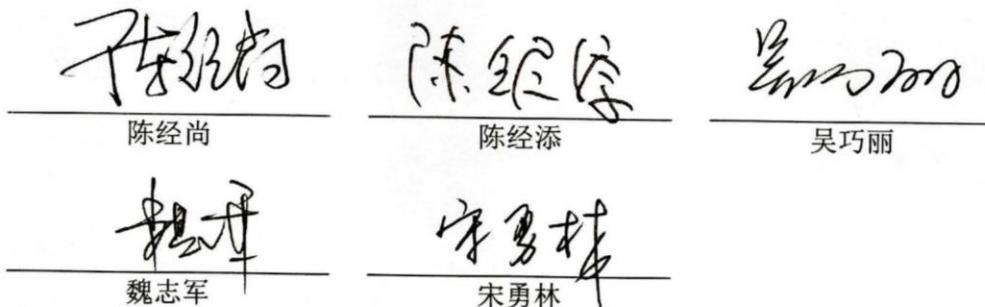 陈经尚 陈经添 吴巧丽
陈经尚 陈经添 吴巧丽
魏志军 宋勇林
魏志军 宋勇林